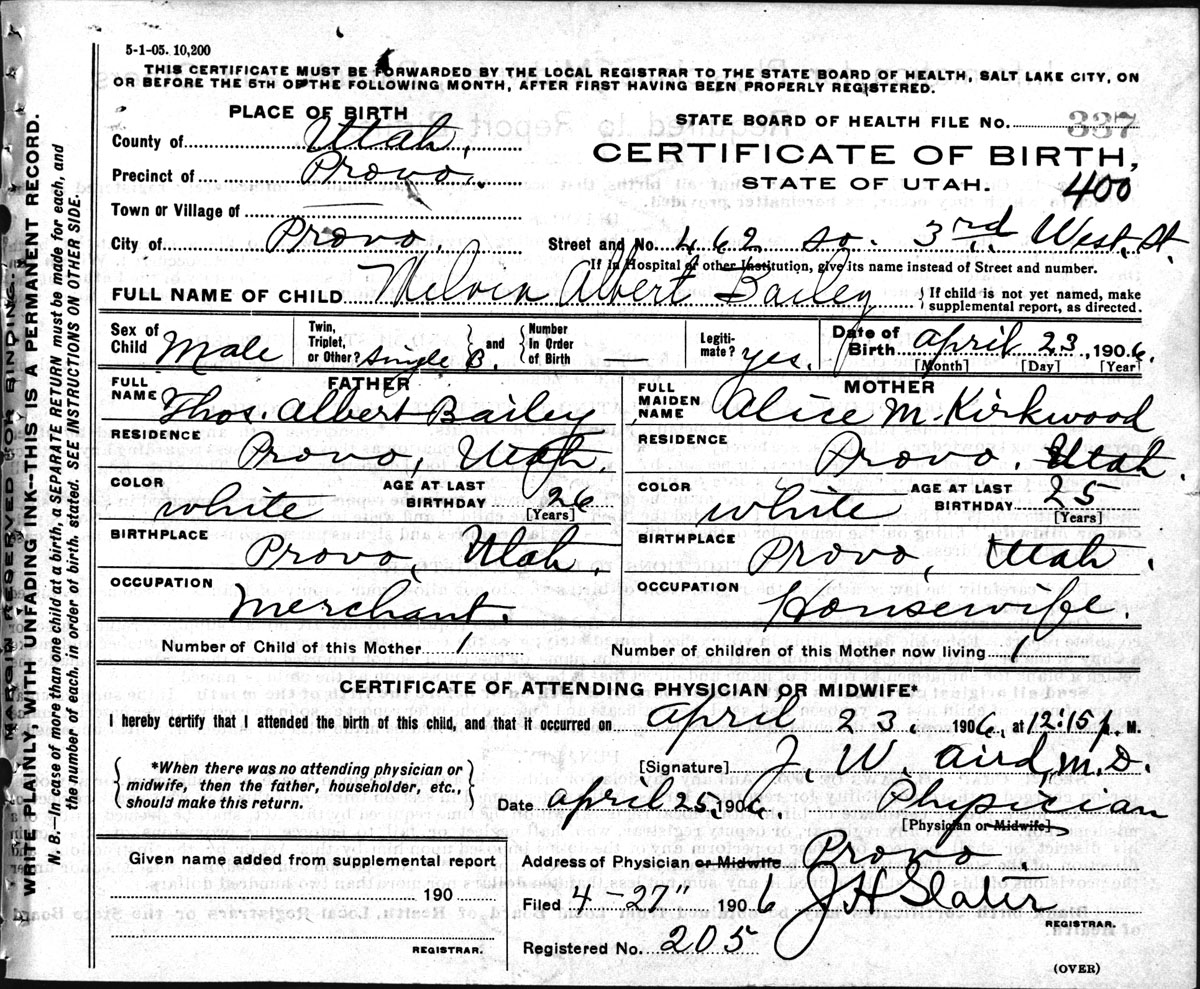 5-1-05. 10,200
THIS CERTIFICATE MUST BE FORWARDED BY THE LOCAL REGISTRAR TO THE STATE BOARD OF HEALTH, SALT LAKE CITY, ON
OR BEFORE THE 5TH OF THE FOLLOWING MONTH, AFTER FIRST HAVING BEEN PROPERLY REGISTERED.
PLACE OF BIRTH
County of Utah.
Precinct of Provo.
Town or Village of —
City of Provo.
STATE BOARD OF HEALTH FILE No. 337
CERTIFICATE OF BIRTH,
STATE OF UTAH.
400
Street and No. 462 so. 3rd West. St.
If in Hospital or other Institution, give its name instead of Street and number.
FULL NAME OF CHILD Melvin Albert Bailey { If child is not yet named, make
supplemental report, as directed.
Sex of Child Male
Twin, Triplet, or Other? Single B. } and { Number In Order of Birth —
Legiti- mate? yes.
Date of Birth April 23, 1906.
[Month] [Day] [Year]
FATHER
FULL NAME Thos. Albert Bailey
RESIDENCE Provo, Utah.
COLOR white AGE AT LAST BIRTHDAY 26
[Years]
BIRTHPLACE Provo, Utah.
OCCUPATION Merchant.
MOTHER
FULL MAIDEN NAME Alice M. Kirkwood
RESIDENCE Provo. Utah.
COLOR white AGE AT LAST BIRTHDAY 25
[Years]
BIRTHPLACE Provo, Utah.
OCCUPATION Housewife.
Number of Child of this Mother 1 Number of children of this Mother now living 1
CERTIFICATE OF ATTENDING PHYSICIAN OR MIDWIFE*
I hereby certify that I attended the birth of this child, and that it occurred on April 23, 1906, at 12:15 p. M.
*When there was no attending physician or
midwife, then the father, householder, etc.,
should make this return.
[Signature] J. W. Aird, M.D.
Date April 25, 1906. Physician
[Physician or Midwife]
Given name added from supplemental report
190
REGISTRAR.
Address of Physician or Midwife Provo.
Filed 4-27" 1906 J H Slater
REGISTRAR.
Registered No. 205
(OVER)
MARGIN RESERVED FOR BINDING.
WRITE PLAINLY WITH UNFADING INK--THIS IS A PERMANENT RECORD.
N. B.—In case of more than one child at a birth, a SEPARATE RETURN must be made for each, and
the number of each, in order of birth, stated. SEE INSTRUCTIONS ON OTHER SIDE.